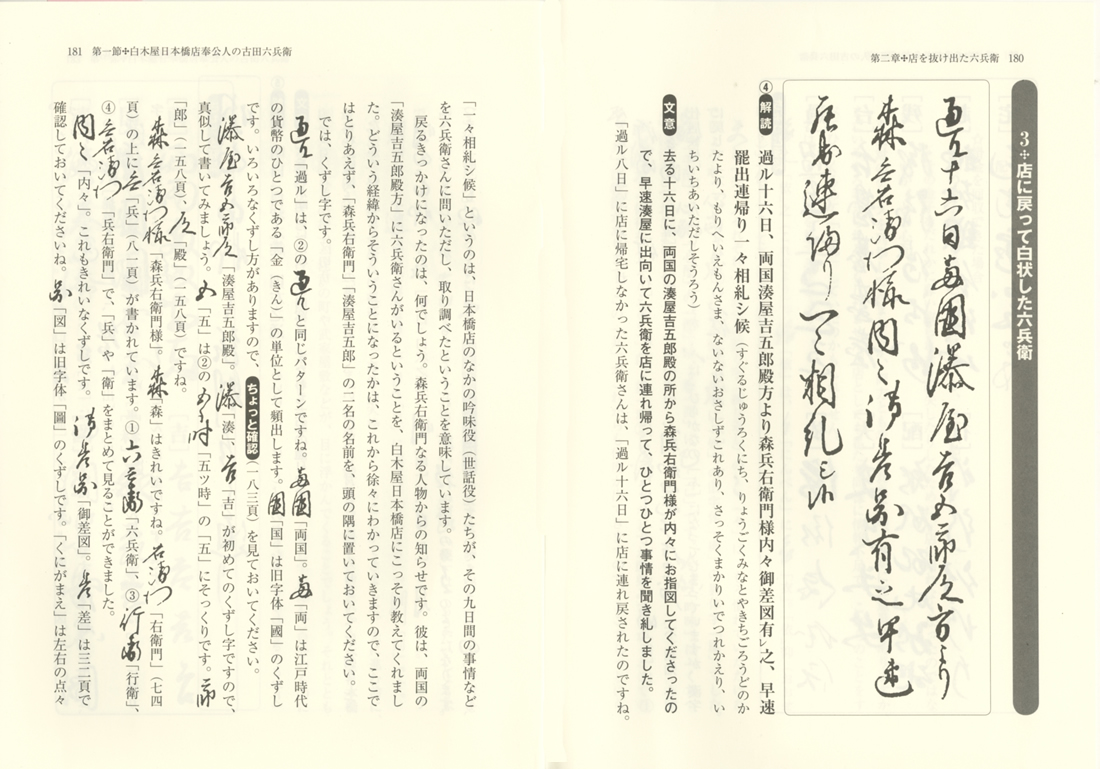 第二章✣店を抜け出た六兵衛 180
3✣店に戻って白状した六兵衛
過ル十六日両国湊屋吉五郎殿方より
森兵右衛門様内々御差図有之早速
罷出連帰り一々相糺シ候
④ 解読 過ル十六日、両国湊屋吉五郎殿方より森兵右衛門様内々御差図有レ之、早速
罷出連帰り一々相糺シ候（すぐるじゅうろくにち、りょうごくみなとやきちごろうどのか
たより、もりへいえもんさま、ないないおさしずこれあり、さっそくまかりいでつれかえり、い
ちいちあいただしそうろう）
文意 去る十六日に、両国の湊屋吉五郎殿の所から森兵右衛門様が内々にお指図してくださったの
で、早速湊屋に出向いて六兵衛を店に連れ帰って、ひとつひとつ事情を聞き糺しました。
「過ル八日」に店に帰宅しなかった六兵衛さんは、「過ル十六日」に店に連れ戻されたのですね。
181 第一節✣白木屋日本橋店奉公人の古田六兵衛
「一々相糺シ候」というのは、日本橋店のなかの吟味役（世話役）たちが、その九日間の事情など
を六兵衛さんに問いただし、取り調べたということを意味しています。
戻るきっかけになったのは、何でしょう。森兵右衛門なる人物からの知らせです。彼は、両国の
「湊屋吉五郎殿方」に六兵衛さんがいるということを、白木屋日本橋店にこっそり教えてくれまし
た。どういう経緯からそういうことになったかは、これから徐々にわかっていきますので、ここで
はとりあえず、「森兵右衛門」「湊屋吉五郎」の二名の名前を、頭の隅に置いておいてください。
では、くずし字です。
過ル「過ル」は、②の過ルと同じパターンですね。両国「両国」。両「両」は江戸時代
の貨幣のひとつである「金（きん）」の単位として頻出します。国「国」は旧字体「國」のくずし
です。いろいろなくずし方がありますので、ちょっと確認（一八三頁）を見ておいてください。
湊屋吉五郎殿「湊屋吉五郎殿」。湊「湊」、吉「吉」が初めてのくずし字ですので、
真似して書いてみましょう。五「五」は②の五ツ時「五ツ時」の「五」にそっくりです。郎
「郎」（一五八頁）、殿「殿」（一五八頁）ですね。
森兵右衛門様「森兵右衛門様」。森「森」はきれいですね。右衛門「右衛門」（七四
頁）の上に兵「兵」（八一頁）が書かれています。①六兵衛「六兵衛」、③行衛「行衛」、
④兵右衛門「兵右衛門」で、「兵」や「衛」をまとめて見ることができました。
内々「内々」。これもきれいなくずしです。御差図「御差図」。差「差」は三二頁で
確認しておいてくださいね。図「図」は旧字体「圖」のくずしです。「くにがまえ」は左右の点々